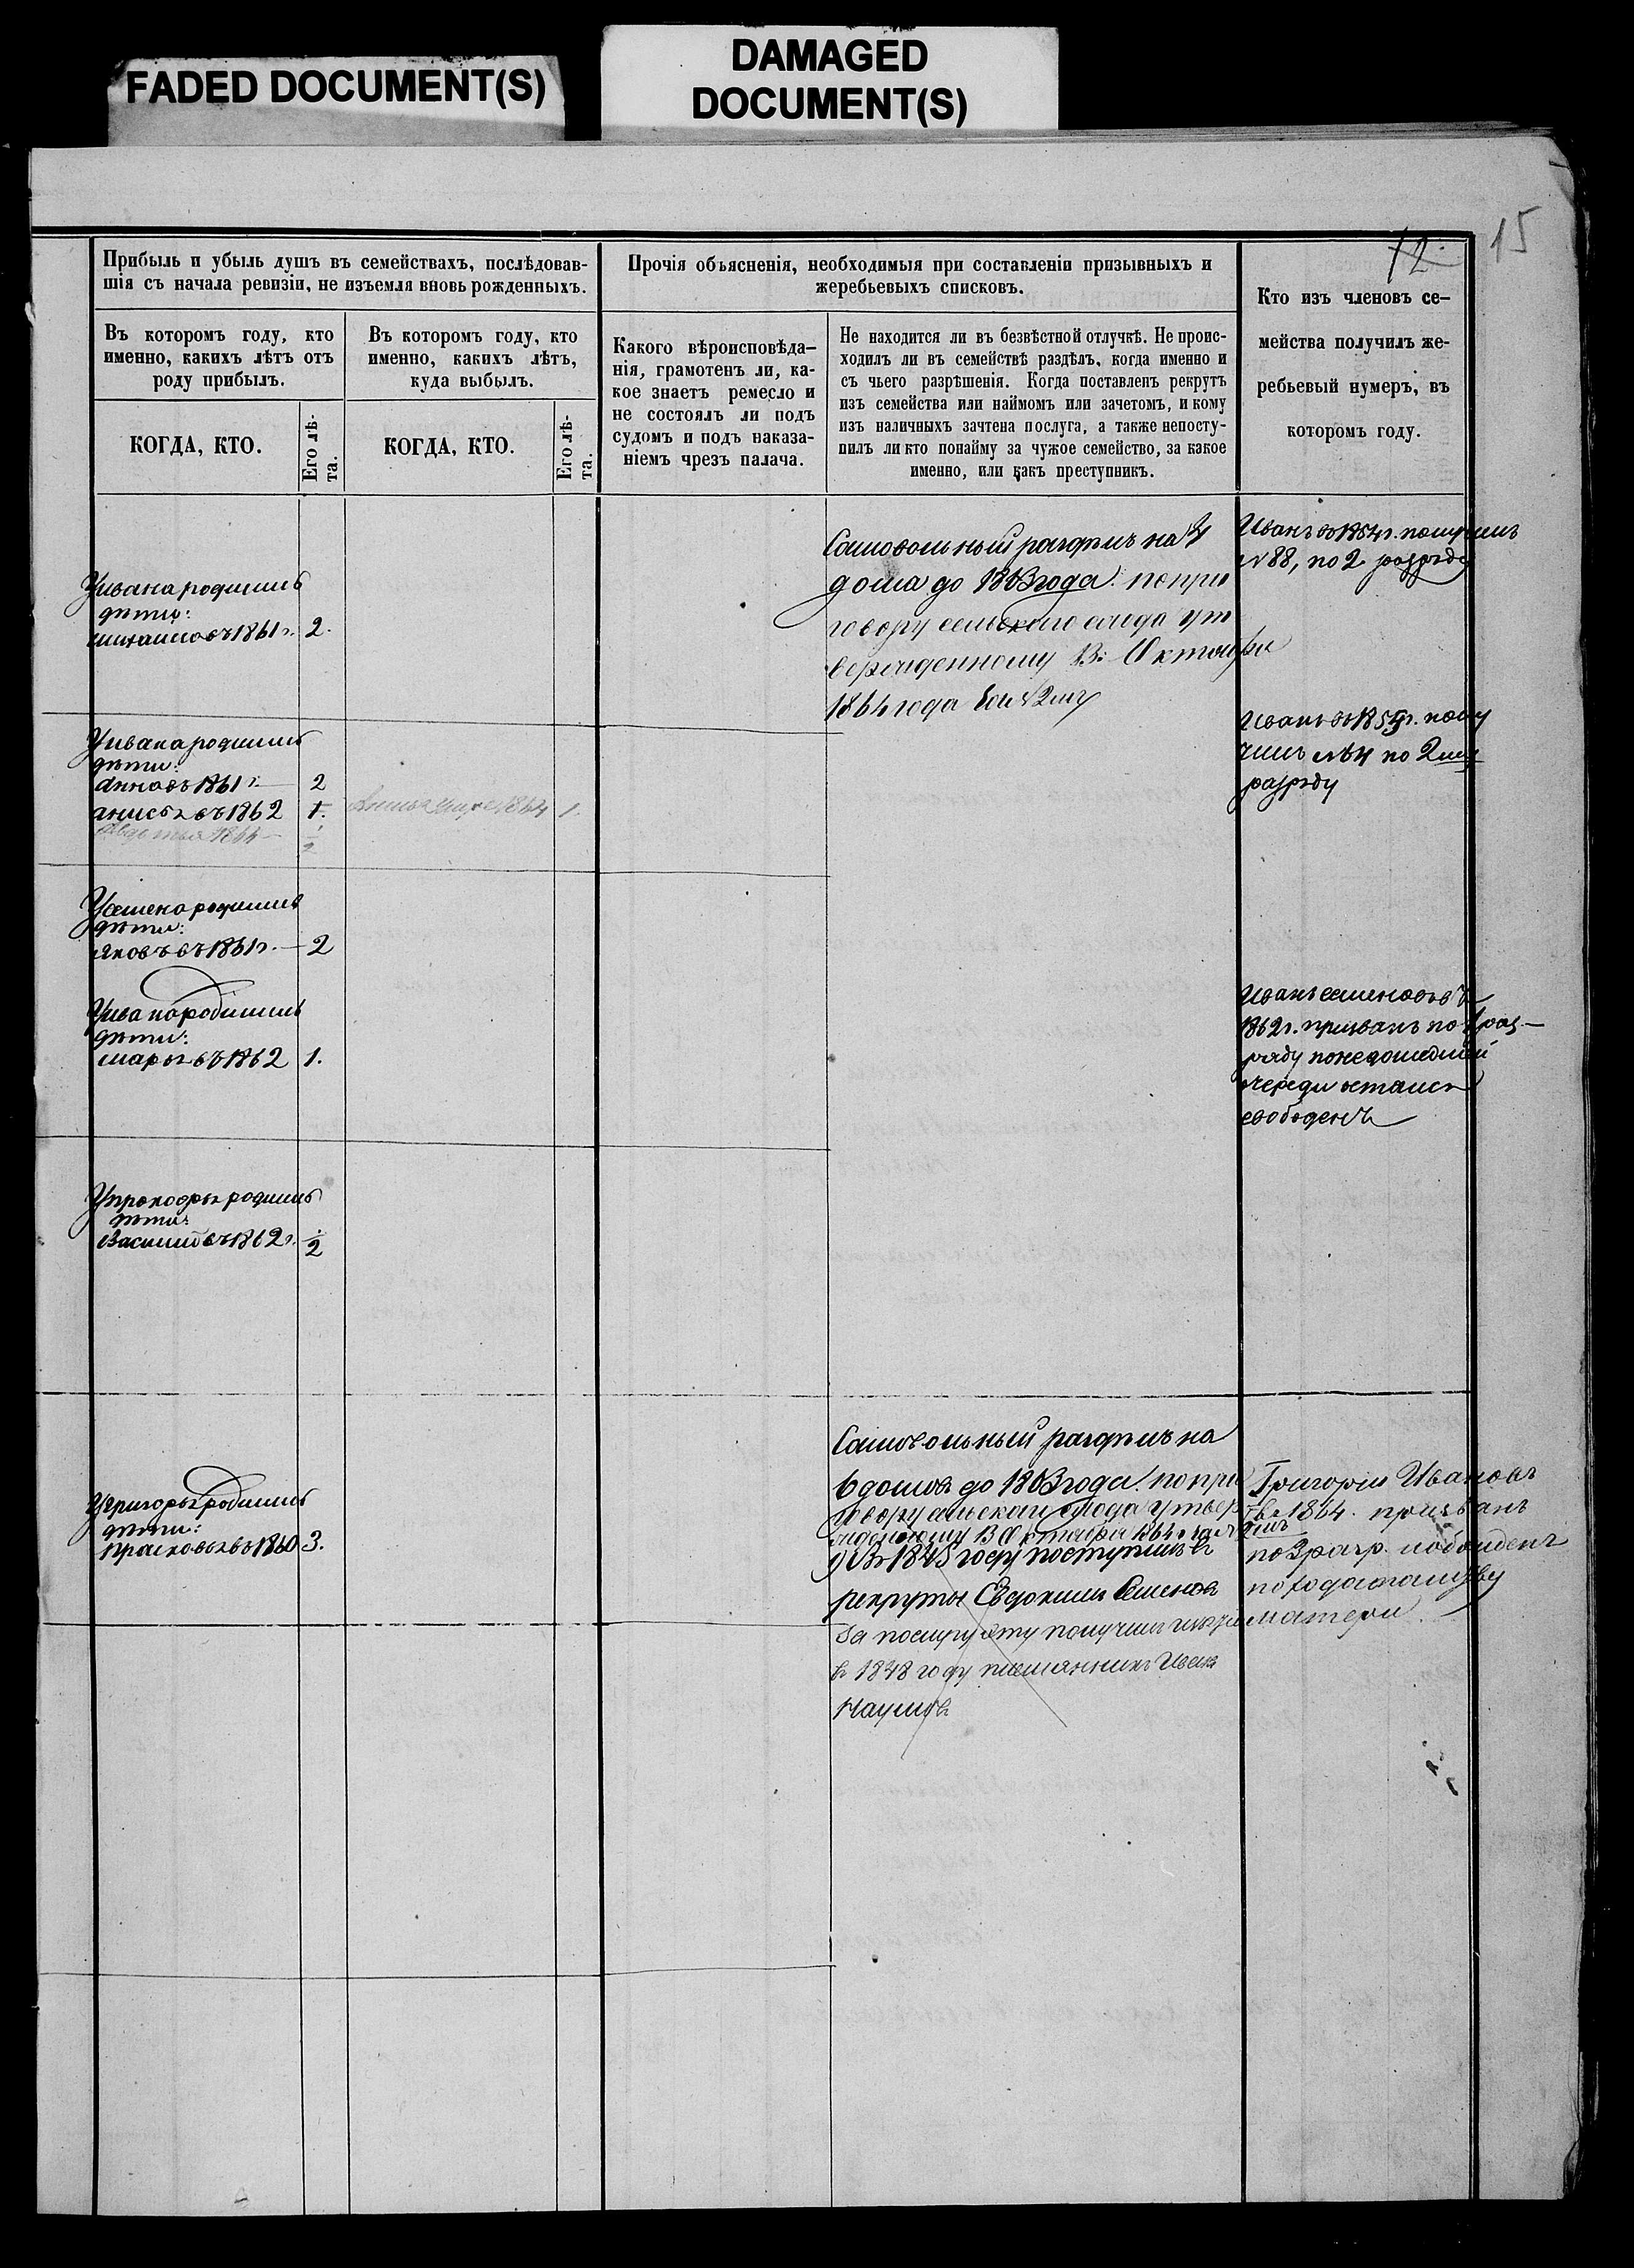 FADED DOCUMENT(S)
DAMAGED
DOCUMENT(S)
15
12
Прибыль и убыль душъ въ семействахъ, послѣдовав-
шія съ начала ревизіи, не изъемля вновь рожденныхъ.
Прочія объясненія, необходимыя при составленіи призывныхъ и
жеребьевыхъ списковъ.
Кто изъ членовъ се-
мейства получилъ же-
ребьевый нумеръ, въ
которомъ году.
Въ которомъ году, кто
именно, какихъ лѣтъ отъ
роду прибылъ.
Въ которомъ году, кто
именно, какихъ лѣтъ,
куда выбылъ.
Какого вѣроисповѣда-
нія, грамотенъ ли, ка-
кое знаетъ ремесло и
не состоялъ ли подъ
судомъ и подъ наказа-
ніемъ чрезъ палача.
Не находится ли въ безвѣстной отлучкѣ. Не проис-
ходилъ ли въ семействѣ раздѣлъ, когда именно и
съ чьего разрѣшенія. Когда поставленъ рекрутъ
изъ семейства или наймомъ или зачетомъ, и кому
изъ наличныхъ зачтена послуга, а также непосту-
пилъ ли кто понайму за чужое семейство, за какое
именно, или какъ преступникъ.
КОГДА, КТО.
Его лѣ-
та.
КОГДА, КТО.
Его лѣ-
та.
У ивана родились
дѣти:
михаилъ въ 1861 г. 2.
Самовольный раздѣлъ на 4
дома до 1863 года по при
говору сельскаго схода ут
вержденному 13 Октября
1864 года
Иванъ въ 1854 г. получилъ
№ 88, по 2 разряду
У ивана родились
дѣти:
Анна въ 1861 г. 2
анисья въ 1862 1.
Авдотья 1864 1/2
Анисья умре 1864 1.
Иванъ въ 1855 г. полу
чилъ № 4 по 2му
разряду
У семена родились
дѣти:
Яковъ въ 1861 г. 2
У ивана родились
дѣти:
марья въ 1862 1.
Иванъ семеновъ въ
1862 г. призванъ по 1 раз-
ряду понедошедшей
очереди остался
свободенъ
У прокофья родились
дѣти:
Василий въ 1862 г. 1/2
Самовольный раздѣлъ на
6 домовъ до 1863 года по при
говору сельскаго схода утвер
жденному 13 Октября 1864 г.
У григорья родились
дѣти:
прасковья въ 1860 3.
Въ 1845 году поступилъ въ
рекруты Евдокимъ Семеновъ
За послугу эту получилъ
въ 1848 году племянникъ Ивана
Наумовъ
Григорий Ивановъ
въ 1864 призванъ
по 3 разр. и свободенъ
по ходатайству
матери